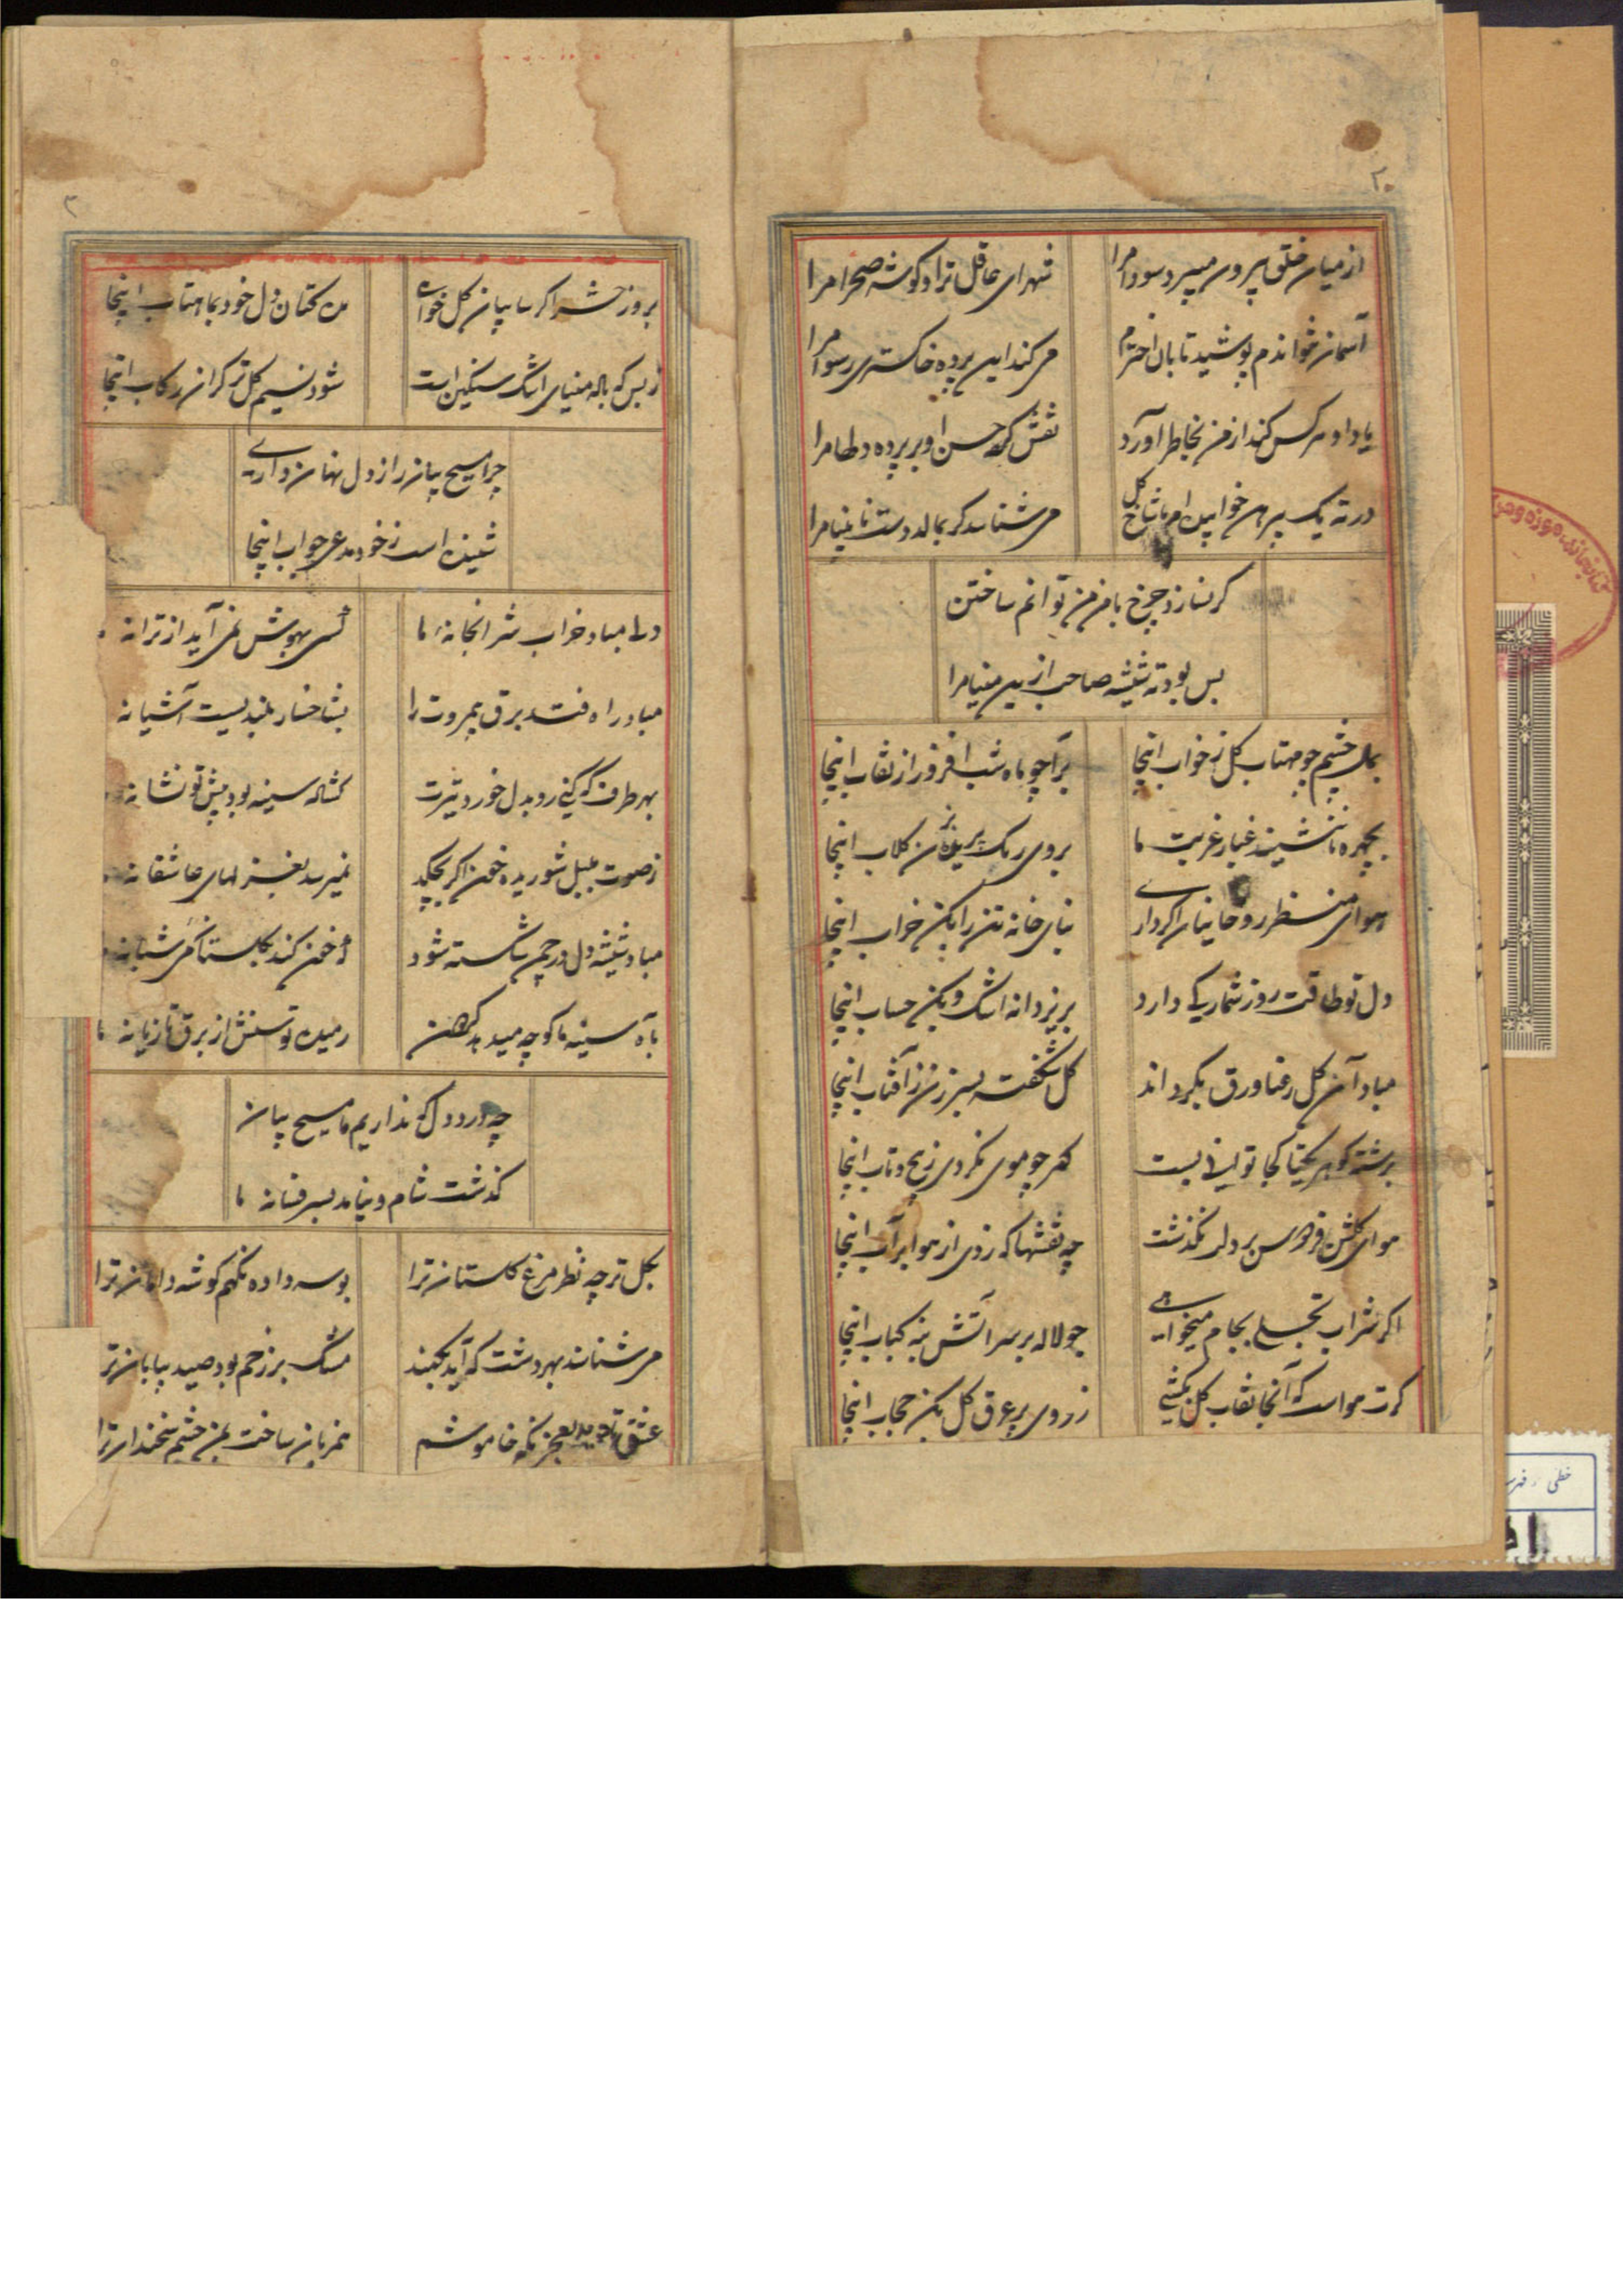 از میان خلق بیرون میبرد سودا مرا
شهر ای عاقل ترا و گوشه صحرا مرا
آسمان
پوشید تابان اخترم
میکند این پرده خاکستری رسوا مرا
یاد او هر کس کند از من بخاطر آورد
نقش کرد حسن او بر پرده دلها مرا
در ته یک پیرهن خوابیده ام با شاخ گل
میشناسد گر بمالد دست نابینا مرا
گر نسازد چرخ با من من توانم ساختن
بس بود ته شیشه صاحب ازین مینا مرا
بمال چشم چو مهتاب گل ز خواب اینجا
برآ چو ماه شب افروز از نقاب اینجا
بچهره تا ننشیند غبار غربت ما
بروی رنگ پریده بزن گلاب اینجا
هوای منظر روحانیان اگر داری
بنای خانه تن را بکن خراب اینجا
دل تو طاقت روز شمار کی دارد
بریز دانه اشک و بکن حساب اینجا
مباد آن گل رعنا ورق بگرداند
گل شکفته بسر زن ز آفتاب اینجا
برشته گهر یکتا کجا توانی بست
کمر چو موی نکردی ز پیچ و تاب اینجا
هوای گلشن فردوس بر دلت نگذشت
چه نقشها که زدی از هوا بر آب اینجا
اگر شراب تجلی بجام میخواهی
چو لاله بر سر آتش بنه کباب اینجا
گرت هواست که آنجا نقاب گل بکشی
ز روی پر عرق گل بکن حجاب اینجا
بروز حشر اگر سایبان گل خواهی
مکن کتان دل خود بماهتاب اینجا
ز بس که ناله مینای اشک سنگین است
شود نسیم گل تر گران رکاب اینجا
چرا مسیح بیان راز دل نهان داری
شنیده است ز خود مدعی جواب اینجا
دلا مباد خراب شرابخانه ما
کسی بهوش نمی آید از ترانه
مباد راه فتد برق بیمروت را
بشاخسار بلندیست آشیانه
بهر طرف که کنی رو بدل خورد تیرت
گشاده سینه بود پیش تو نشانه
ز صوت بلبل شوریده خون اگر بچکد
نمیرسد بغزلهای عاشقانه
مباد شیشه دل در چمن شکسته شود
که خون کند بگلستان می شبانه
بآه سینه ما کوچه میدهد گردون
رمیده توسنش از برق تازیانه ما
چه درد دل که نداریم ما مسیح بیان
گذشت شام و نیامد بسر فسانه ما
بگل تر چه نظر مرغ گلستان ترا
بوسه داده نگهم گوشه دامان ترا
میشناسند بهر دشت که آید بکمند
مشک بر زخم بود صید بیابان ترا
عشق
خاموشم
همزبان ساخت بمن چشم سخندان ترا